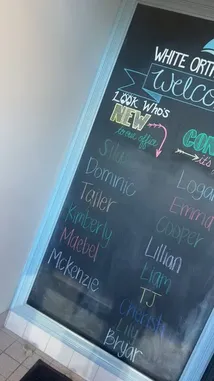 WHITE ORT
Welco
Look Who's
NEW
to our office
CON
it's
Silas
Dominic
Tayler
Kimberly
Maebel
Mckenzie
Logan
Emma
Cooper
Lillian
Liam
TJ
Lily
Bryar